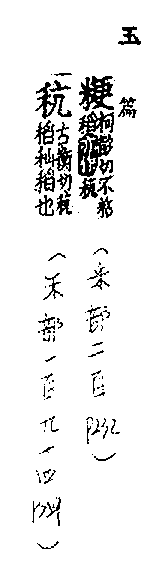 玉篇
粳 柯彭切不黏
稻 秔
（米部二百 P232）
秔 古衡切秔
稻秈稻也
（禾部一百九十四